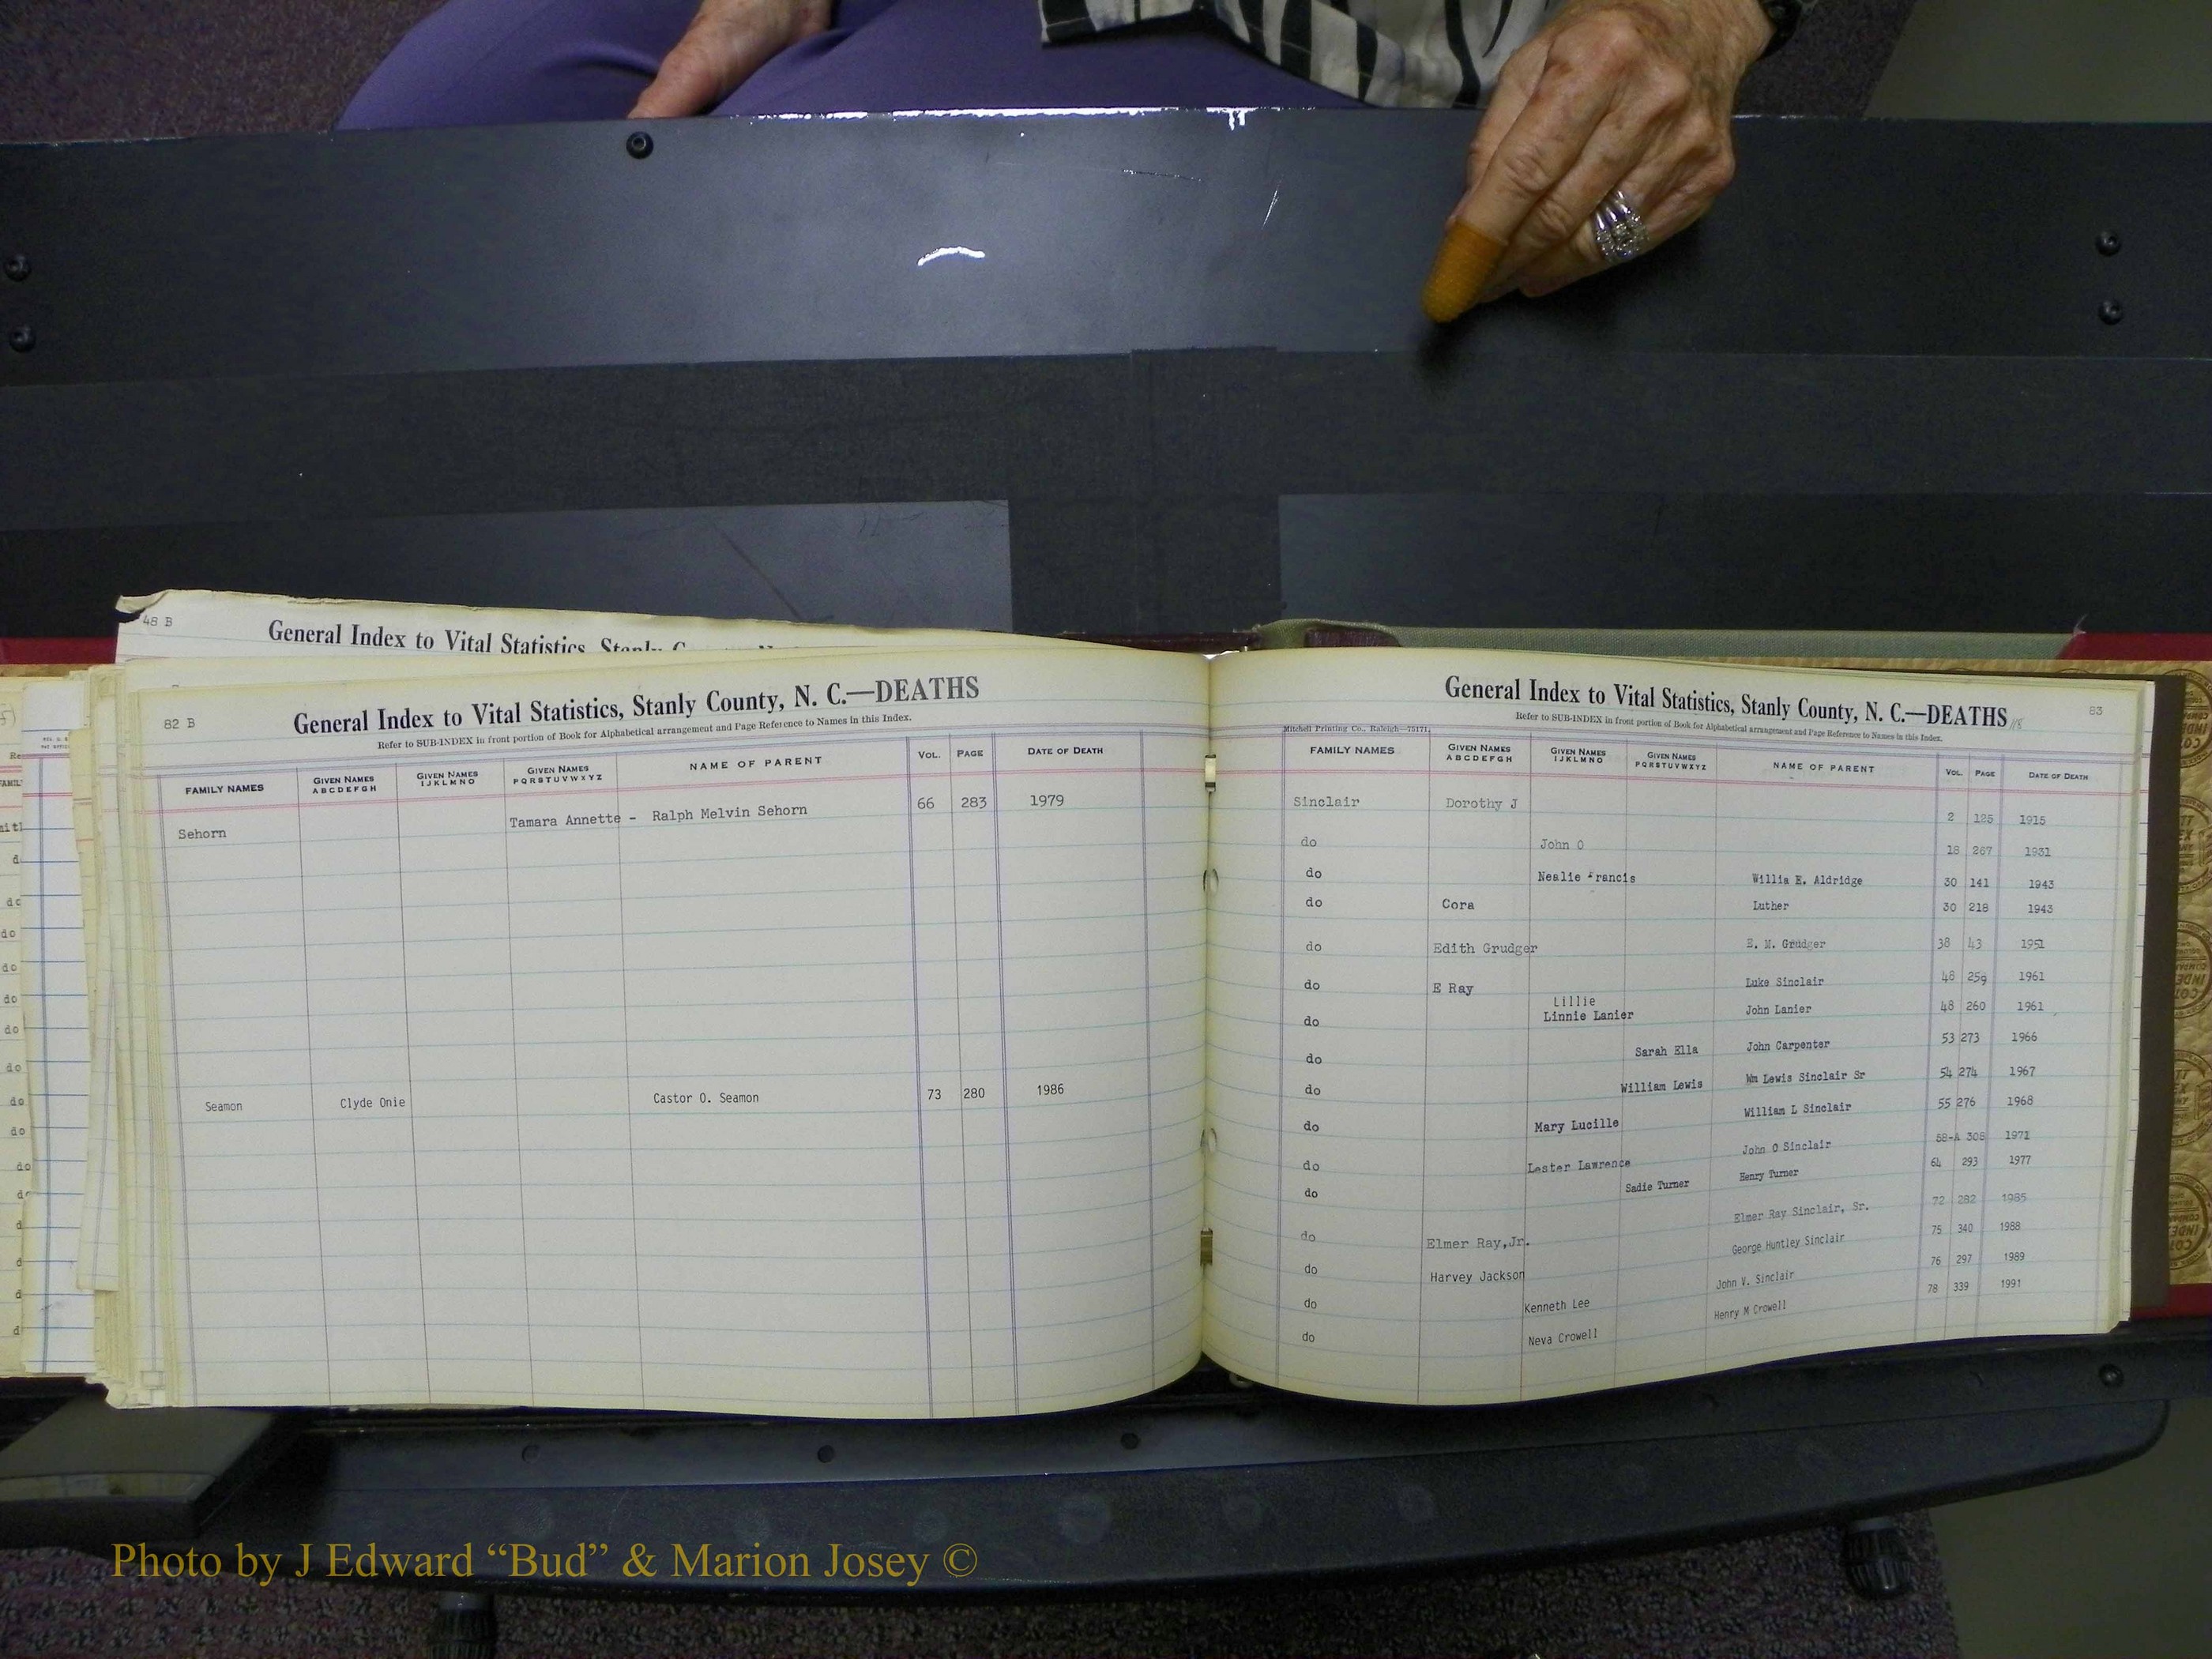 48 B
General Index to Vital Statistics, Stanly
82 B
General Index to Vital Statistics, Stanly County, N. C.—DEATHS
Refer to SUB-INDEX in front portion of Book for Alphabetical arrangement and Page Reference to Names in this Index.
FAMILY NAMES GIVEN NAMES ABCDEFGH GIVEN NAMES IJKLMNO GIVEN NAMES PQRSTUVWXYZ NAME OF PARENT VOL. PAGE DATE OF DEATH
Sehorn Tamara Annette - Ralph Melvin Sehorn 66 283 1979
Seamon Clyde Onie Castor O. Seamon 73 280 1986
General Index to Vital Statistics, Stanly County, N. C.—DEATHS
83
Refer to SUB-INDEX in front portion of Book for Alphabetical arrangement and Page Reference to Names in this Index.
Mitchell Printing Co., Raleigh—75171.
FAMILY NAMES GIVEN NAMES ABCDEFGH GIVEN NAMES IJKLMNO GIVEN NAMES PQRSTUVWXYZ NAME OF PARENT VOL. PAGE DATE OF DEATH
Sinclair Dorothy J 2 125 1915
do John O 18 267 1931
do Nealie Francis Willia E. Aldridge 30 141 1943
do Cora Luther 30 218 1943
do Edith Grudger E. M. Grudger 38 43 1951
do E Ray Luke Sinclair 48 259 1961
Lillie
do Linnie Lanier John Lanier 48 260 1961
do Sarah Ella John Carpenter 53 273 1966
do William Lewis Wm Lewis Sinclair Sr 54 274 1967
do Mary Lucille William L Sinclair 55 276 1968
do Lester Lawrence John O Sinclair 58-A 308 1971
do Sadie Turner Henry Turner 64 293 1977
do Elmer Ray,Jr. Elmer Ray Sinclair, Sr. 72 282 1985
do Harvey Jackson George Huntley Sinclair 75 340 1988
do Kenneth Lee John V. Sinclair 76 297 1989
do Neva Crowell Henry M Crowell 78 339 1991
Photo by J Edward “Bud” & Marion Josey ©